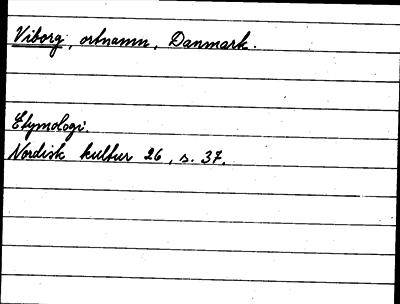 Viborg, ortnamn, Danmark.
Etymologi.
Nordisk kultur 26, s. 37.